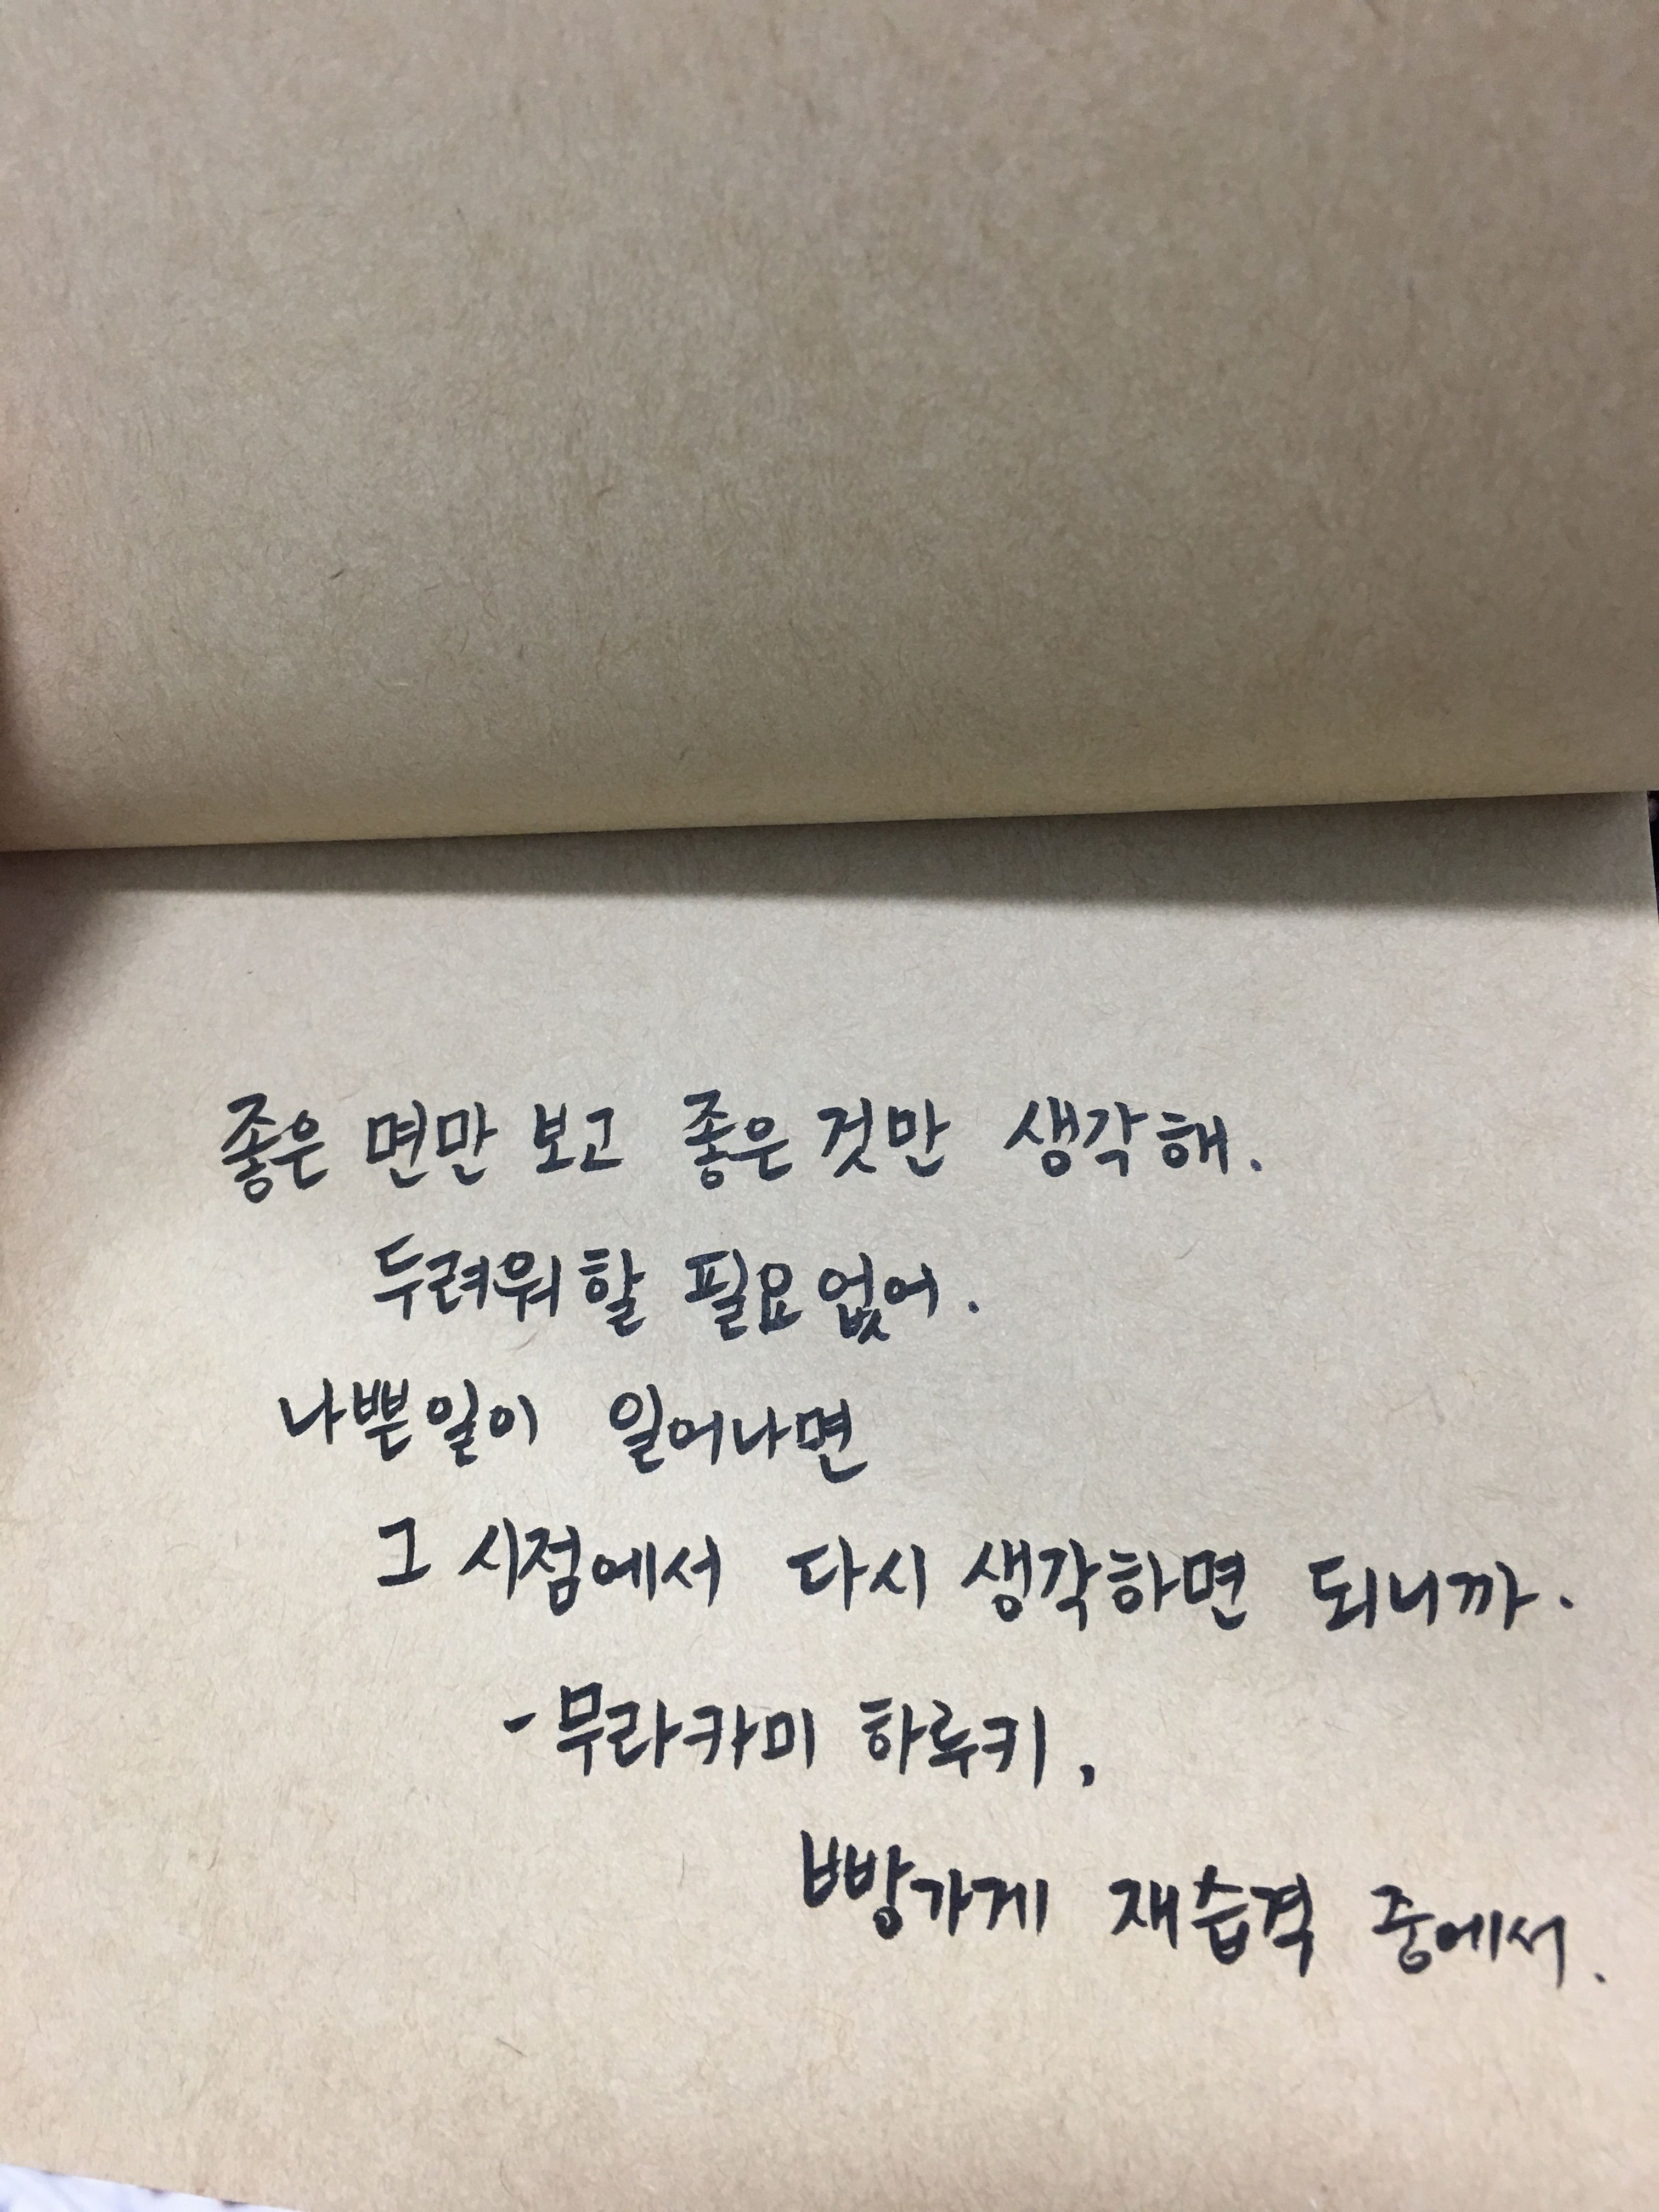 좋은 면만 보고 좋은 것만 생각해.
두려워할 필요없어.
나쁜일이 일어나면
그 시점에서 다시 생각하면 되니까.
-무라카미 하루키,
빵가게 재습격 중에서.